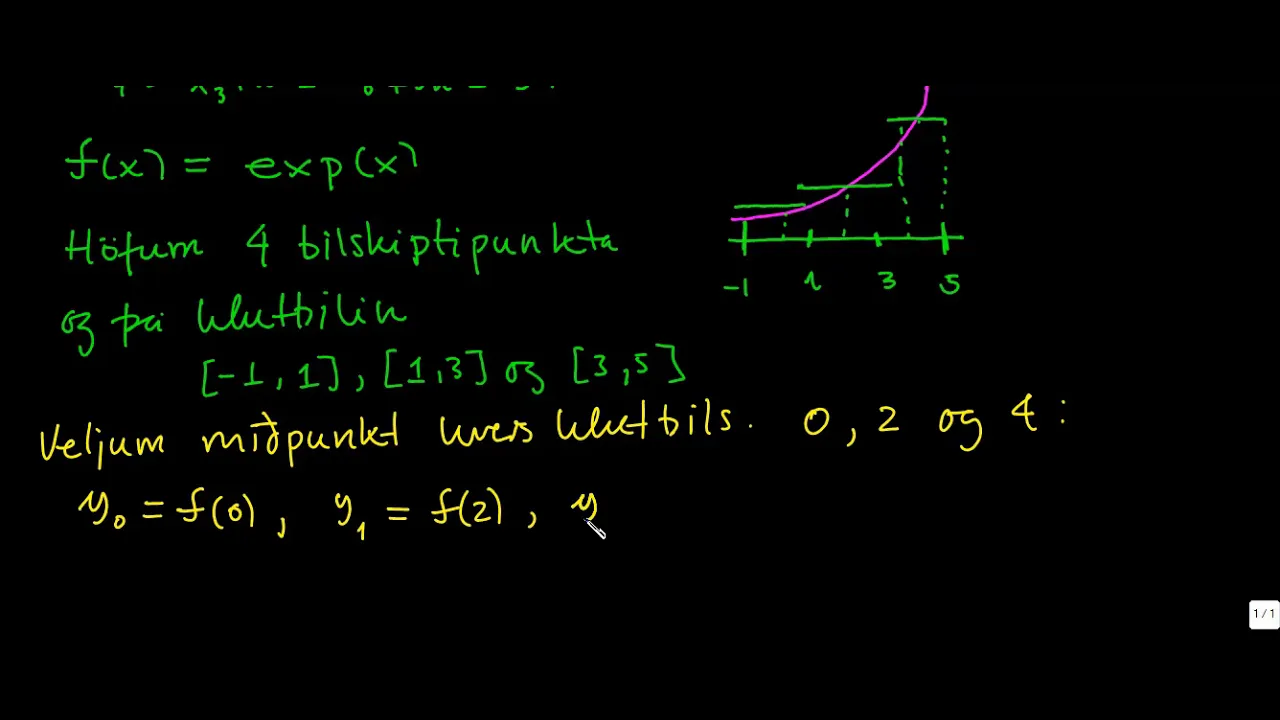 f(x) = exp(x)
Höfum 4 bilskiptipunkta
og þá hlutbilin
[-1, 1], [1,3] og [3,5]
Veljum miðpunkt hvers hlutbils. 0, 2 og 4:
y₀ = f(0), y₁ = f(2), y
-1 1 3 5
1/1